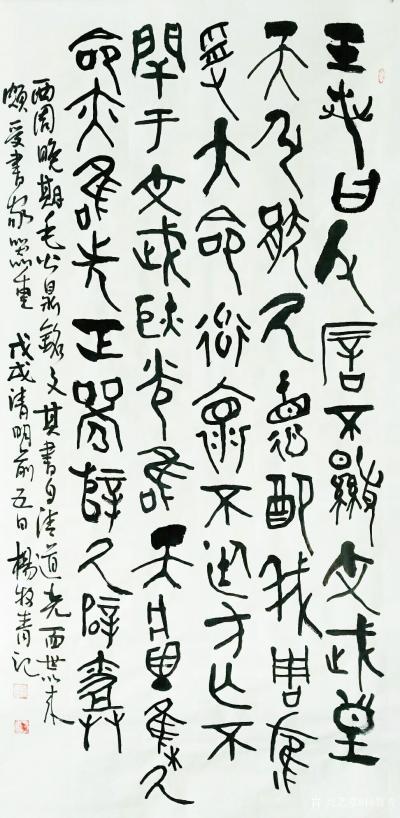 王若曰父厝不顯文武皇
天弘猒厥德配我周膺
受大命率懷不廷方亡不
閈于文武耿光唯天將集厥
命亦唯先正襄辥厥辟
西周晚期毛公鼎銘文其書自清道光面世以來
頗受書家器重 戊戌清明前五日 楊牧青記